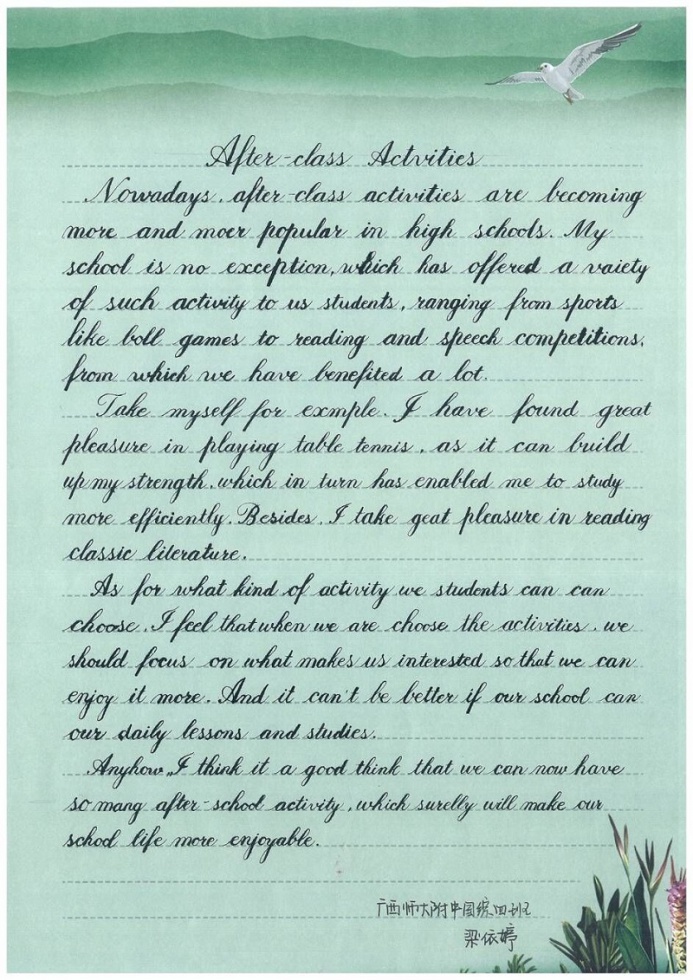 After-class Actvities
Nowadays, after-class activities are becoming
more and moer popular in high schools. My
school is no exception, which has offered a vaiety
of such activity to us students, ranging from sports
like boll games to reading and speech competitions,
from which we have benefited a lot.
Take myself for exmple. I have found great
pleasure in playing table tennis, as it can build
up my strength, which in turn has enabled me to study
more efficiently. Besides, I take geat pleasure in reading
classic literature.
As for what kind of activity we students can can
choose, I feel that when we are choose the activities, we
should focus on what makes us interested so that we can
enjoy it more. And it can't be better if our school can
our daily lessons and studies.
Anyhow, I think it a good think that we can now have
so mang after-school activity, which surelly will make our
school life more enjoyable.
广西师大附中国缤四班
梁依婷